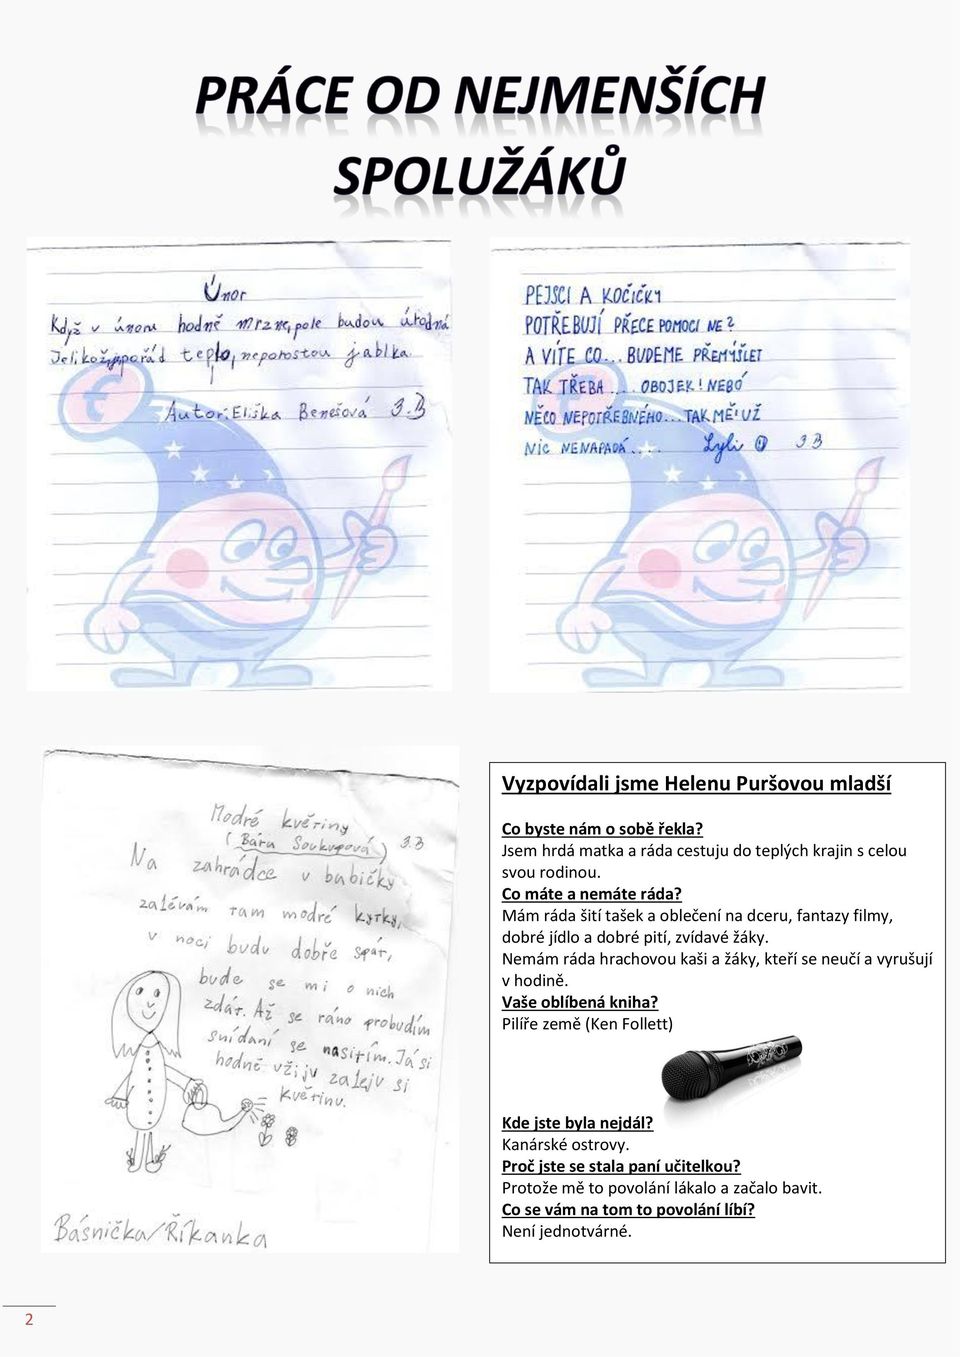 PRÁCE OD NEJMENŠÍCH
SPOLUŽÁKŮ
Únor
Když v únoru hodně mrzne, pole budou úrodná
Jelikož je pořád teplo, neporostou jablka.
Autor: Eliška Benešová 3.B
PEJSCI A KOČIČKY
POTŘEBUJÍ PŘECE POMOCI NE?
A VÍTE CO... BUDEME PŘEMÝŠLET
TAK TŘEBA .... OBOJEK! NEBO
NĚCO NEPOTŘEBNÉHO... TAK MĚ UŽ
NIC NENAPADÁ.... Lyli 3.B
Modré květiny
(Bára Soukupová) 3.B
Na zahrádce v babičky
zalévám tam modré kytky,
v noci budu dobře spát,
bude se mi o nich
zdát. Až se ráno probudím
snídaní se nasitím. Já si
hodně užiju zaleju si
květinu.
Básnička/Říkanka
Vyzpovídali jsme Helenu Puršovou mladší
Co byste nám o sobě řekla?
Jsem hrdá matka a ráda cestuju do teplých krajin s celou
svou rodinou.
Co máte a nemáte ráda?
Mám ráda šití tašek a oblečení na dceru, fantazy filmy,
dobré jídlo a dobré pití, zvídavé žáky.
Nemám ráda hrachovou kaši a žáky, kteří se neučí a vyrušují
v hodině.
Vaše oblíbená kniha?
Pilíře země (Ken Follett)
Kde jste byla nejdál?
Kanárské ostrovy.
Proč jste se stala paní učitelkou?
Protože mě to povolání lákalo a začalo bavit.
Co se vám na tom to povolání líbí?
Není jednotvárné.
2